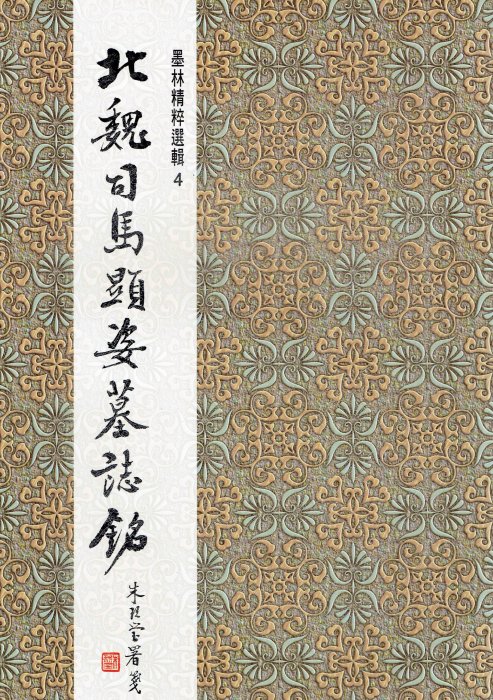 墨林精粹選輯 4
北魏司馬顯姿墓誌銘
署箋